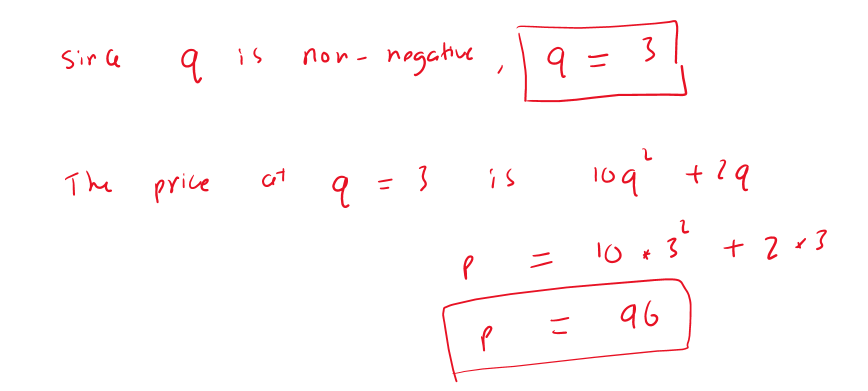 Since q is non-negative, q = 3
The price at q = 3 is 10q² + 2q
p = 10 * 3² + 2 * 3
p = 96